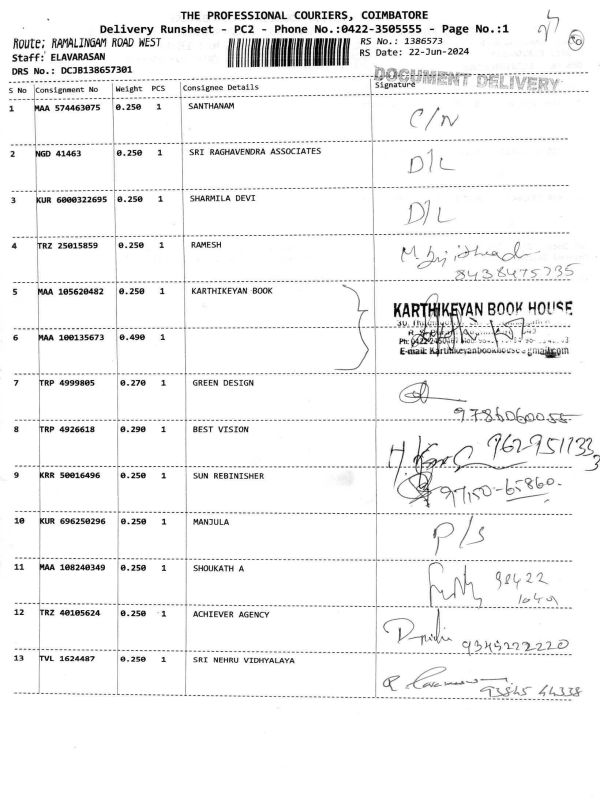 THE PROFESSIONAL COURIERS, COIMBATORE
Delivery Runsheet - PC2 - Phone No.:0422-3505555 - Page No.:1
Route: RAMALINGAM ROAD WEST RS No.: 1386573
Staff: ELAVARASAN RS Date: 22-Jun-2024
DRS No.: DCJB138657301
DOCUMENT DELIVERY
S No Consignment No Weight PCS Consignee Details Signature
1 MAA 574463075 0.250 1 SANTHANAM C/N
2 NGD 41463 0.250 1 SRI RAGHAVENDRA ASSOCIATES D/L
3 KUR 6000322695 0.250 1 SHARMILA DEVI D/L
4 TRZ 25015859 0.250 1 RAMESH
8438475735
5 MAA 105620482 0.250 1 KARTHIKEYAN BOOK KARTHIKEYAN BOOK HOUSE
6 MAA 100135673 0.490 1
E-mail: Karthikeyanbookhouse@gmail.com
7 TRP 4999805 0.270 1 GREEN DESIGN
9786060055
8 TRP 4926618 0.290 1 BEST VISION 962-9511333
9 KRR 50016496 0.250 1 SUN REBINISHER 97150-65860
10 KUR 696250296 0.250 1 MANJULA P/S
11 MAA 108240349 0.250 1 SHOUKATH A 98422
12 TRZ 40105624 0.250 1 ACHIEVER AGENCY
9345222220
13 TVL 1624487 0.250 1 SRI NEHRU VIDHYALAYA
93845 44338